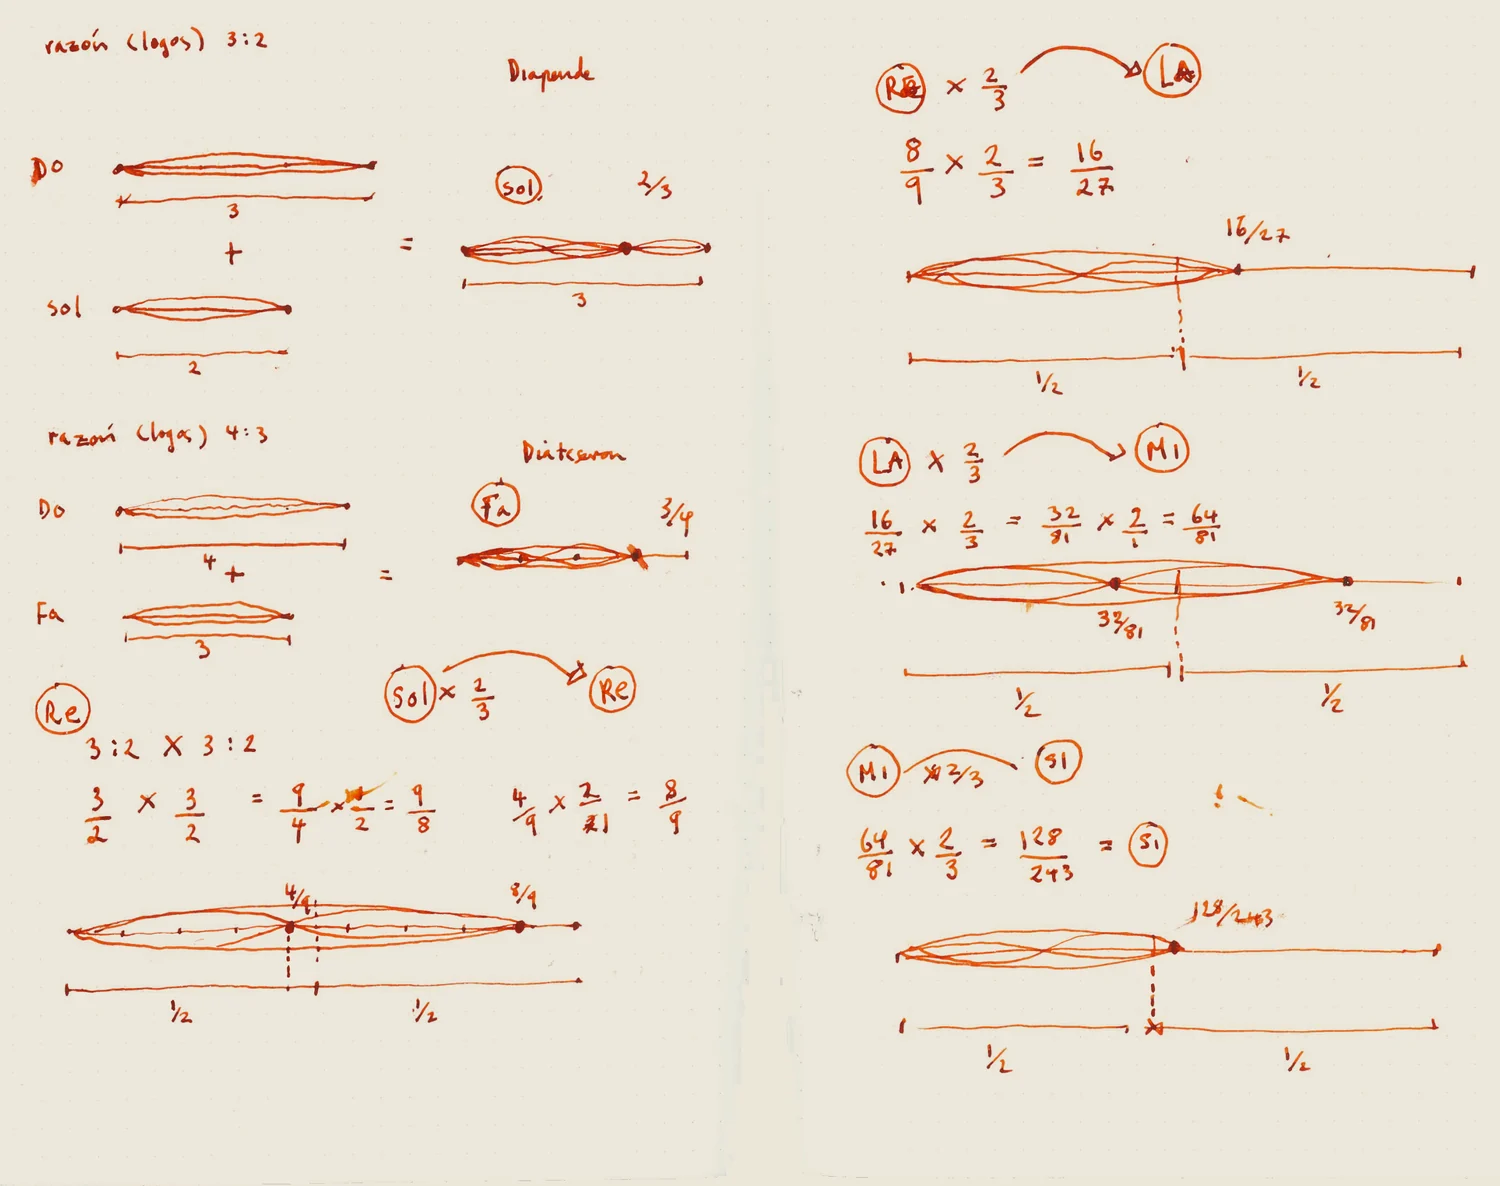 razón (logos) 3:2
Diapende
Do
3
+
sol
2
=
sol
2/3
3
razón (logos) 4:3
Diateseron
Do
4
+
Fa
3
=
Fa
3/4
Re
Sol × 2/3 Re
3:2 × 3:2
3/2 × 3/2 = 9/4 × 1/2 = 9/8
4/9 × 2/1 = 8/9
4/9
8/9
1/2 1/2
RE × 2/3 LA
8/9 × 2/3 = 16/27
16/27
1/2 1/2
LA × 2/3 MI
16/27 × 2/3 = 32/81 × 2/1 = 64/81
32/81 32/81
1/2 1/2
MI × 2/3 SI
64/81 × 2/3 = 128/243 = SI
128/243
1/2 1/2